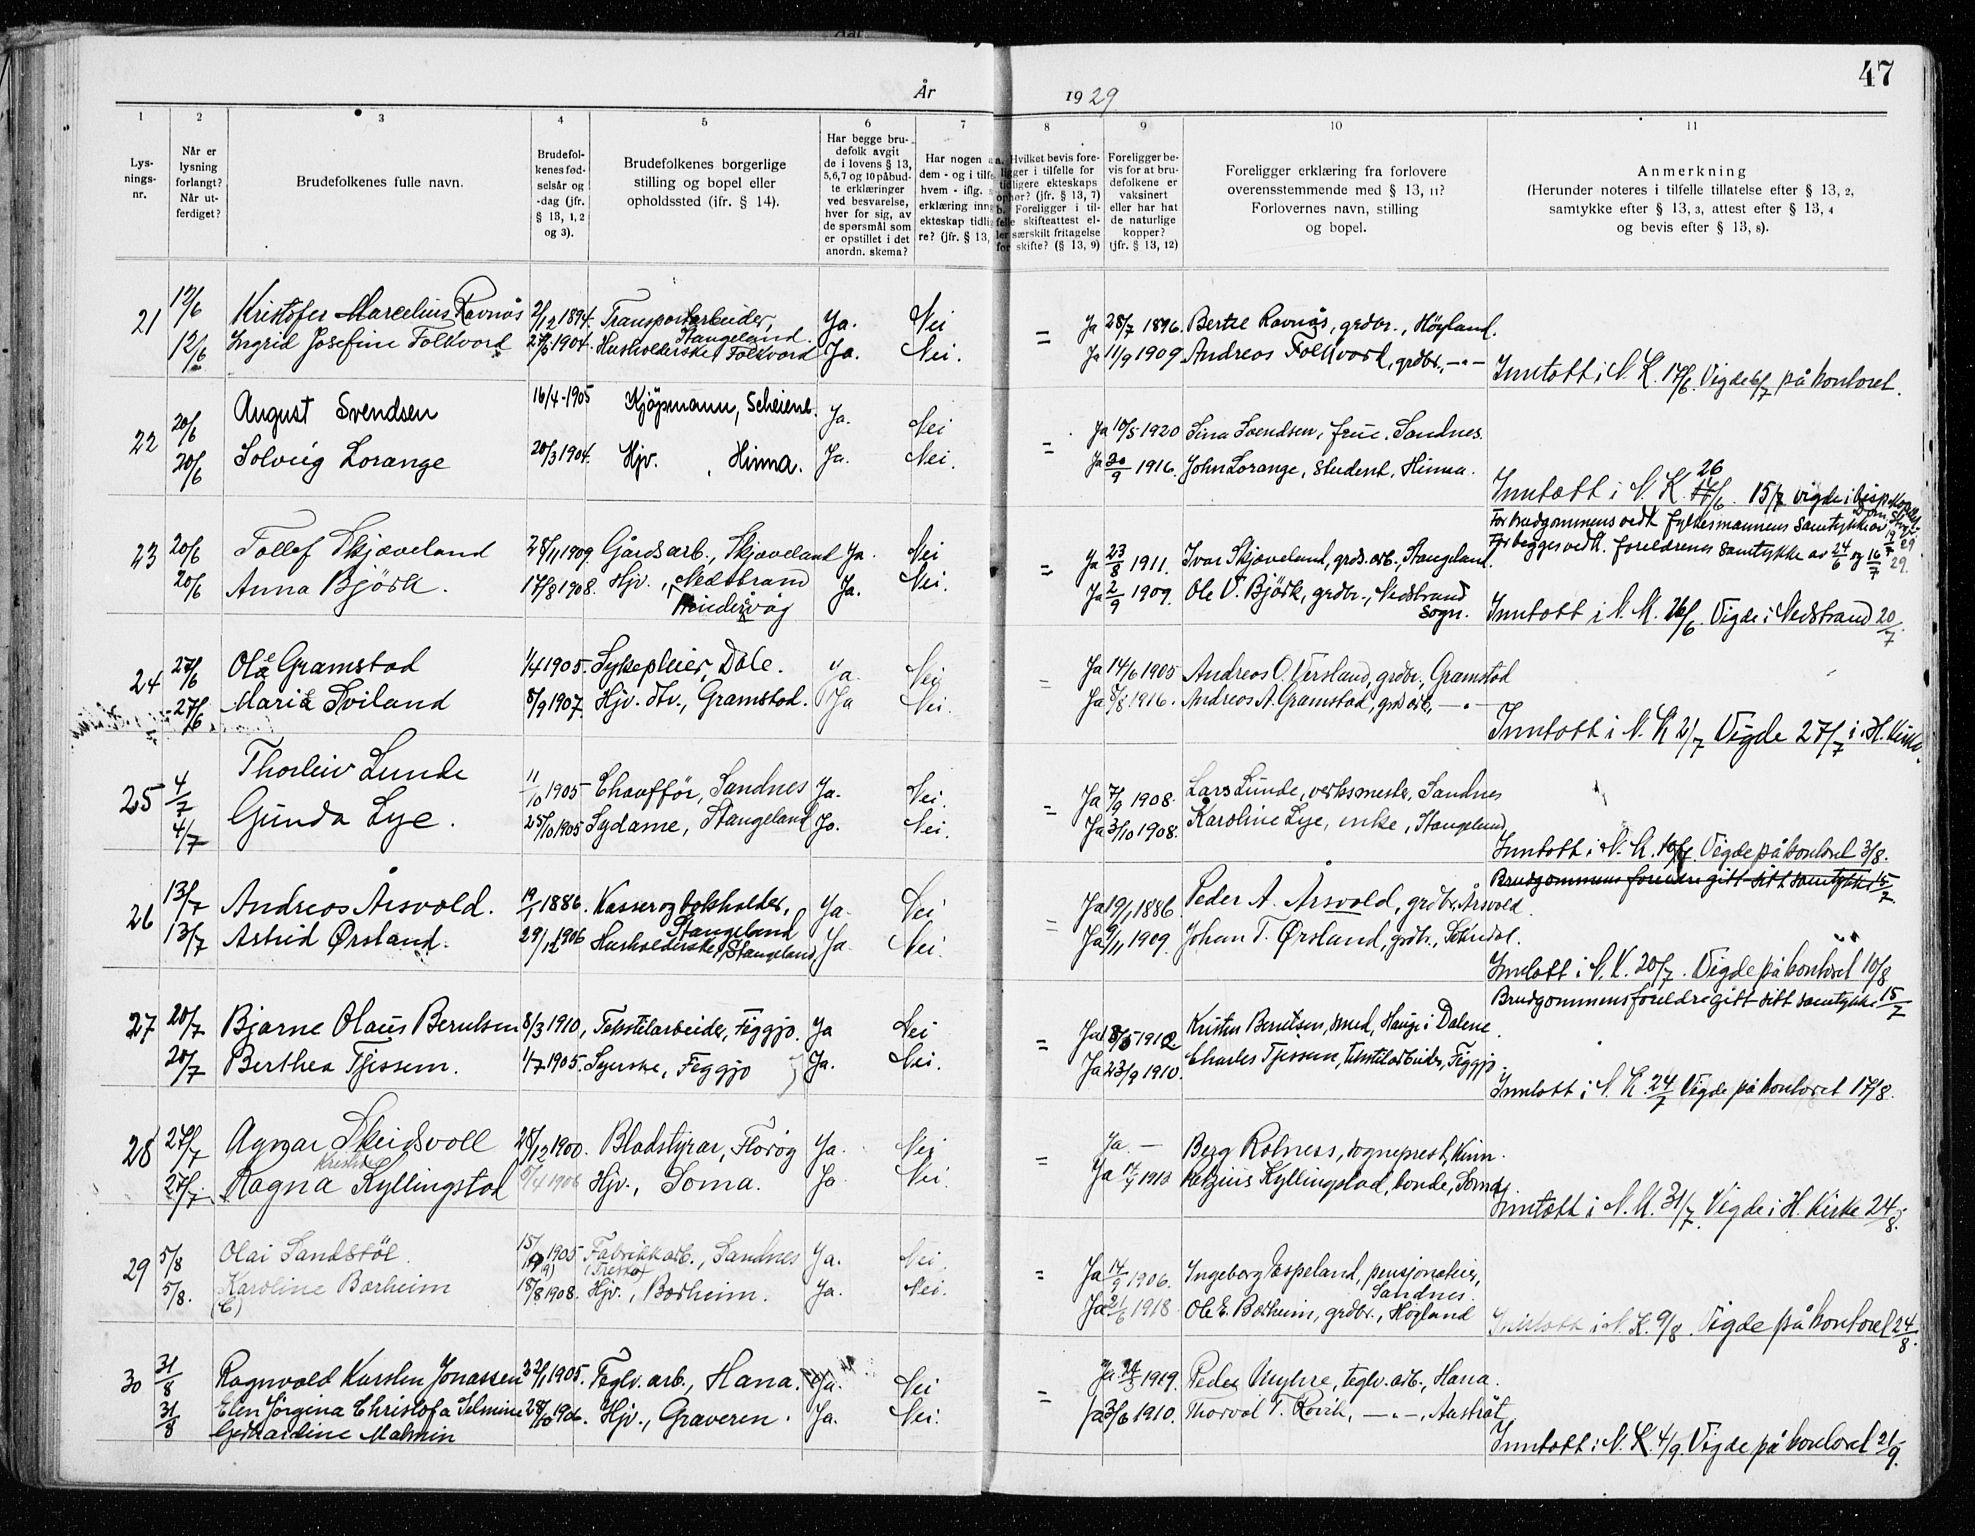 47
År 1929
1 2 3 4 5 6 7 8 9 10 11
Lysningsnr.
Når er lysning forlangt? Når utferdiget?
Brudefolkenes fulle navn.
Brudefolkenes fødselsår og -dag (jfr. § 13, 1, 2 og 3).
Brudefolkenes borgerlige stilling og bopel eller opholdssted (ifr. § 14).
Har begge brudefolk avgit de i lovens § 13, 5,6,7 og 10 påbudte erklæringer ved besvarelse, hver for sig, av de spørsmål som er opstillet i det anordn. skema?
Har nogen a
dem - og i tilfe
hvem - iflg.
erklæring inng
ekteskap tidlig
re? (jfr. § 13,
a. Hvilket bevis foreligger i tilfelle for tidligere ekteskaps ophør? (jfr. § 13, 7)
b. Foreligger i tilfelle skifteattest eller særskilt fritagelse for skifte? (§ 13, 9)
Foreligger bevis for at brudefolkene er vaksinert eller har hat de naturlige kopper? (jfr. § 13, 12)
Foreligger erklæring fra forlovere overensstemmende med § 13, 11? Forlovernes navn, stilling og bopel.
Anmerkning
(Herunder noteres i tilfelle tillatelse efter § 13, 2, samtykke efter § 13, 3, attest efter § 13, 4 og bevis efter § 13, 8).
21 12/6 Kristofer Marcelius Ravnås 2/12 1894. Transportarbeider, Stangeland. Ja. Nei = Ja 28/7 1896. Bertee Ravnås, grdbr., Høyland.
12/6 Ingrid Josefine Folkvord 27/6 1904. Husholderske Folkvord Ja. Nei. Ja 11/9 1909 Andreas Folkvord, grdbr., —"—
Inntatt i N. K. 17/6. Vigde 6/7 på kontoret.
22 20/6 August Svendsen 16/4-1905 Kjøpmann, Scheienb. Ja. Nei = Ja 10/5 1920 Sina Svendsen, frue, Sandnes.
20/6 Solveig Lorange 20/3 1904. Hjv. , Hinna. Ja. Nei. Ja 20/9 1916. John Lorange, student, Hinna.
26
Inntatt i N. K. 17/6. 15/7 vigde i
For brudgommens vedk. fylkesmannens samtykke av
For begges vedk. foreldrenes samtykke av 24/6 og 16/7 29.
23 20/6 Tollef Skjæveland 28/11 1909. Gårdsarb., Skjæveland Ja. Nei = Ja 23/8 1911. Ivar Skjæveland, grds.arb., Stangeland.
20/6 Anna Björk. 17/8 1908. Hjv. , Nedstrand Hindervåg Ja. Nei. Ja 2/9 1909. Ole V. Björk, grdbr., Nedstrand sogn.
Inntatt i N. K. 26/6. Vigde i Nedstrand 20/7.
24 27/6 Ola Gramstad 1/4 1905. Sykepleier, Dale. Ja. Nei = Ja 14/6 1905 Andreas O. Versland, grdbr., Gramstad
27/6 Maria Sviland 8/9 1907. Hjv. dtr., Gramstad. Ja Nei. Ja 8/8 1916. Andreas A. Gramstad, grd arb., —"—
Inntatt i N. K 2/7 Vigde 27/7 i H. Kirke.
25 4/7 Thorleiv Lunde 11/10 1905 Chauffør, Sandnes Ja. Nei. = Ja 7/9 1908. Lars Lunde, verksmester, Sandnes
4/7 Gunda Lye. 25/10 1905 Sydame, Stangeland Ja. Nei. Ja 3/10 1908. Karoline Lye, enke, Stangeland,
Inntatt i N. K. 10/7. Vigde på kontoret 3/8.
Brudgommens foreldre gitt sitt samtykke 15/7
26 13/7 Andreas Årsvold. 19/1 1886. Kasser og bokholder, Stangeland Ja. Nei = Ja 19/1 1886. Peder A. Årsvold, grdbr. Årsvold.
13/7 Astrid Ørsland. 29/12 1906 Husholderske, Stangeland, Ja. Nei. Ja 9/11 1909. Johan T. Ørsland, grdbr., Sokndal.
Inntatt i N. K. 20/7. Vigde på kontoret 10/8
Brudgommens foreldre gitt sitt samtykke 15/7
27 20/7 Bjarne Olaus Berntsen 8/3 1910, Tekstilarbeider, Figgjo. Ja Nei = Ja 18/5 1912 Kristen Berntsen, smed, Hauge i Dalene.
20/7 Berthea Tjessem. 1/7 1905. Syerske, Figgjo Ja. Nei. Ja 23/9 1910. Charles Tjessem, tekstilarbeider, Figgjo.
Inntatt i N. K. 24/7 Vigde på kontoret 17/8.
28 27/7 Agnar Skeidsvoll 28/12 1900. Bladstyrar, Florøy Ja. Nei = Ja. — Berg Rolness, sogneprest, Kinn.
27/7. Ragna Kristine Kyllingstad 5/4 1906 Hjv., Soma. Ja Nei. Ja Retzius Kyllingstad, bonde, Soma.
Inntatt i N. K. 31/7. Vigde i H. Kirke 24/8.
29 5/8 Olai Sandstøl. 15/ 1905 Fabrikkarb., Sandnes (Tresko) Ja. Nei = Ja 14/9 1906. Ingeborg Espeland, pensjonatier, Sandnes.
5/8. Karoline Bærheim 18/8 1908. Hjv., Bærheim. Ja. Nei. Ja 21/6 1918 Ole E. Bærheim, grdbr., Høyland
Inntatt i N. K. 9/8. Vigde på kontoret 24/8.
30 31/8 Ragnvald Karsten Jonassen 22/1 1905. Teglv. arb., Hana. Ja. Nei = Ja 24/3 1919. Peder Myhre, teglv. arb., Hana.
31/8 Elen Jörgina Christofa Selmine Gerhardine Malmin 28/10 1906. Hjv., Graveren. Ja. Nei. Ja 3/6 1910. Thorvald T. Rovik, —"—, Austråt
Inntatt i N. K. 4/9. Vigde på kontoret 21/9.